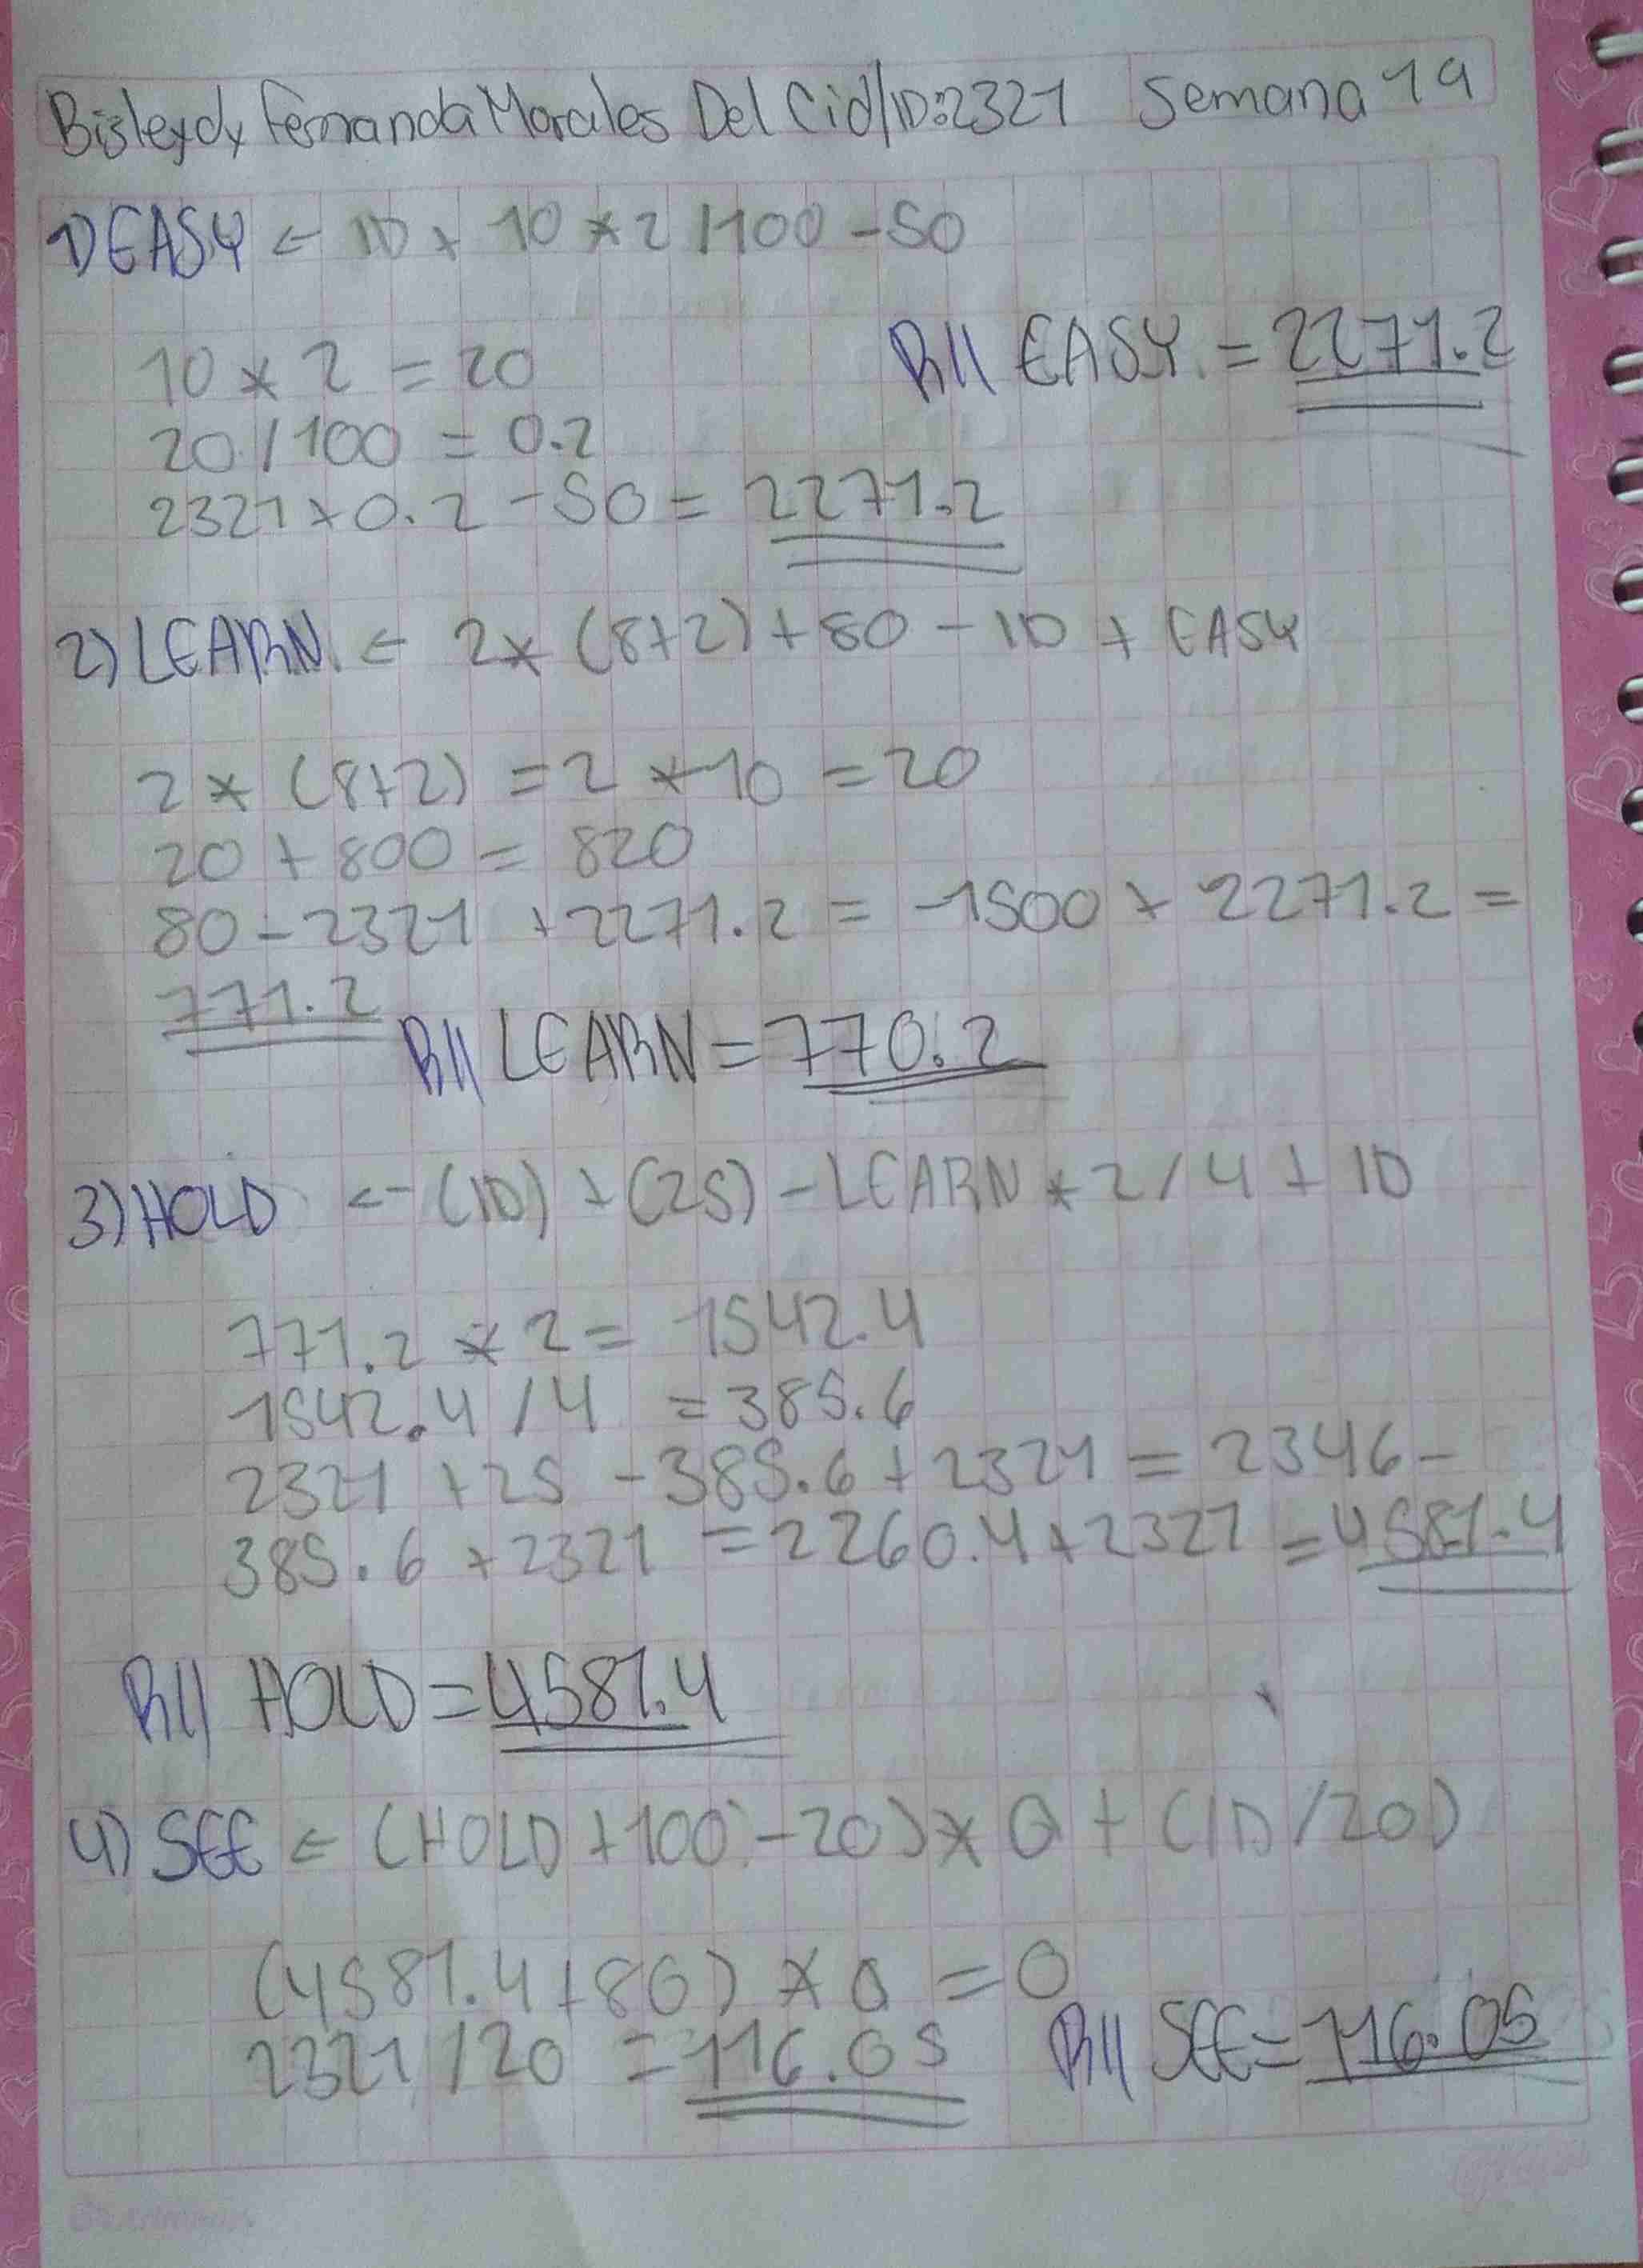 Bisleydy Fernanda Morales Del Cid/ID:2321 Semana 19
1) EASY ← ID + 10 * 2 / 100 - 50
10 * 2 = 20
R// EASY = 2271.2
20 / 100 = 0.2
2321 + 0.2 - 50 = 2271.2
2) LEARN ← 2 * (8+2) + 80 - ID + EASY
2 * (8+2) = 2 * 10 = 20
20 + 800 = 820
80 - 2321 + 2271.2 = -1500 + 2271.2 =
771.2
R// LEARN = 770.2
3) HOLD <- (ID) + (25) - LEARN * 2 / 4 + ID
771.2 * 2 = 1542.4
1542.4 / 4 = 385.6
2321 + 25 - 385.6 + 2321 = 2346 -
385.6 + 2321 = 2260.4 + 2321 = 4581.4
R// HOLD = 4581.4
4) SEE ← (HOLD + 100 - 20) * 0 + (ID / 20)
(4581.4 + 80) * 0 = 0
2321 / 20 = 116.05
R// SEE = 116.05